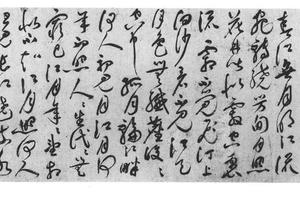 春江無月明江流
宛轉繞芳甸月照
花林皆似霰空裏
流霜不覺飛汀上
白沙看不見江天
一色無纖塵皎皎
空中孤月輪江畔
何人初見月江月何
年初照人人生代代無
窮已江月年年望相
似不知江月待何人
但見長江送流水